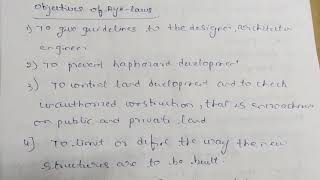 Objectives of Bye-laws
1) To give guidelines to the designer, Architector
engineer
2) To prevent haphazard development
3) To control land development and to check
unauthorized construction, that is encroachmen
on public and private land
4] To limit or define the way the new
structures are to be built.